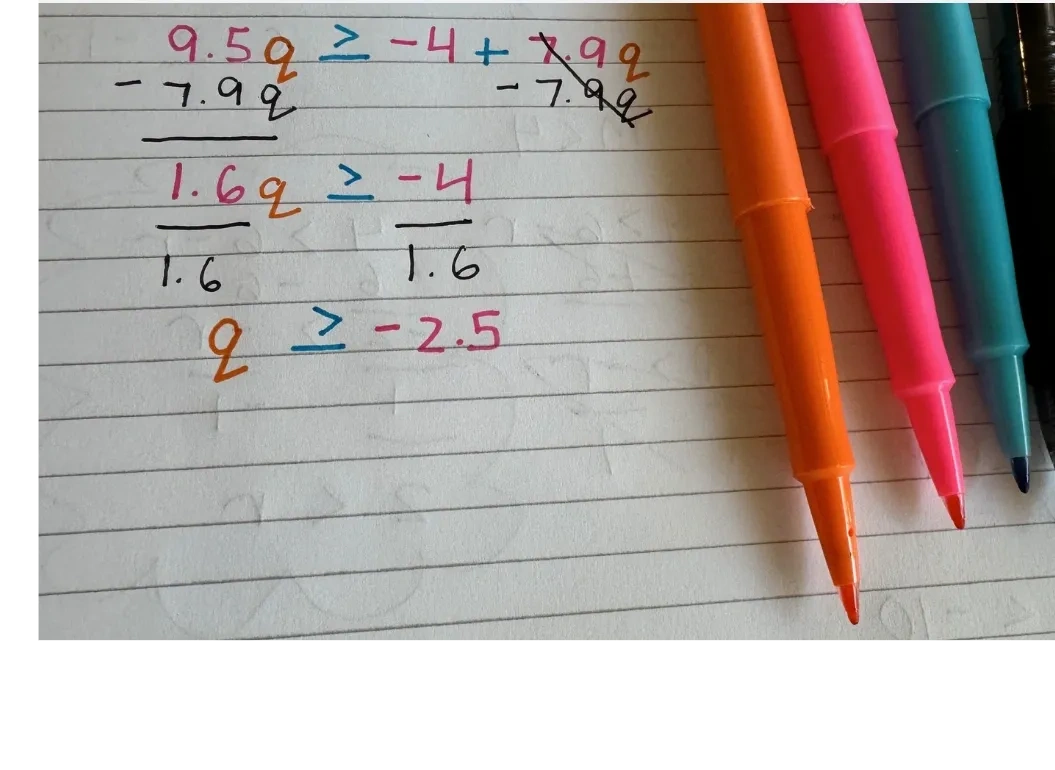 9.5q ≥ -4 + 7.9q
- 7.9q - 7.9q
1.6q ≥ -4
1.6 1.6
q ≥ -2.5